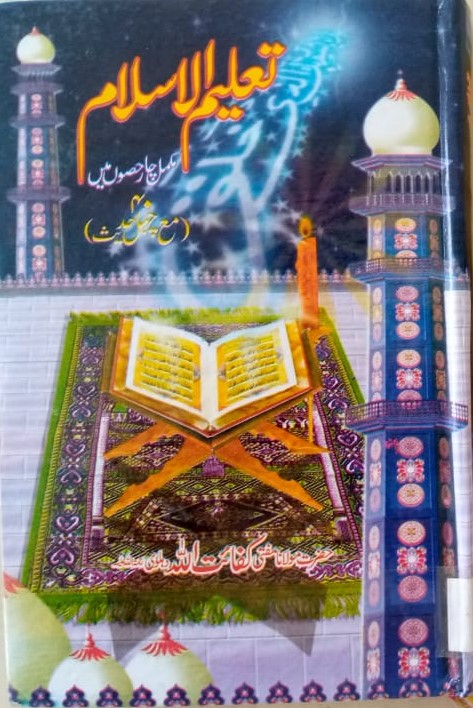 تعلیم الاسلام
مکمل چار حصوں میں
(مع چہل حدیث)
۴۰
حضرت مولانا مفتی کفایت اللہ دہلوی